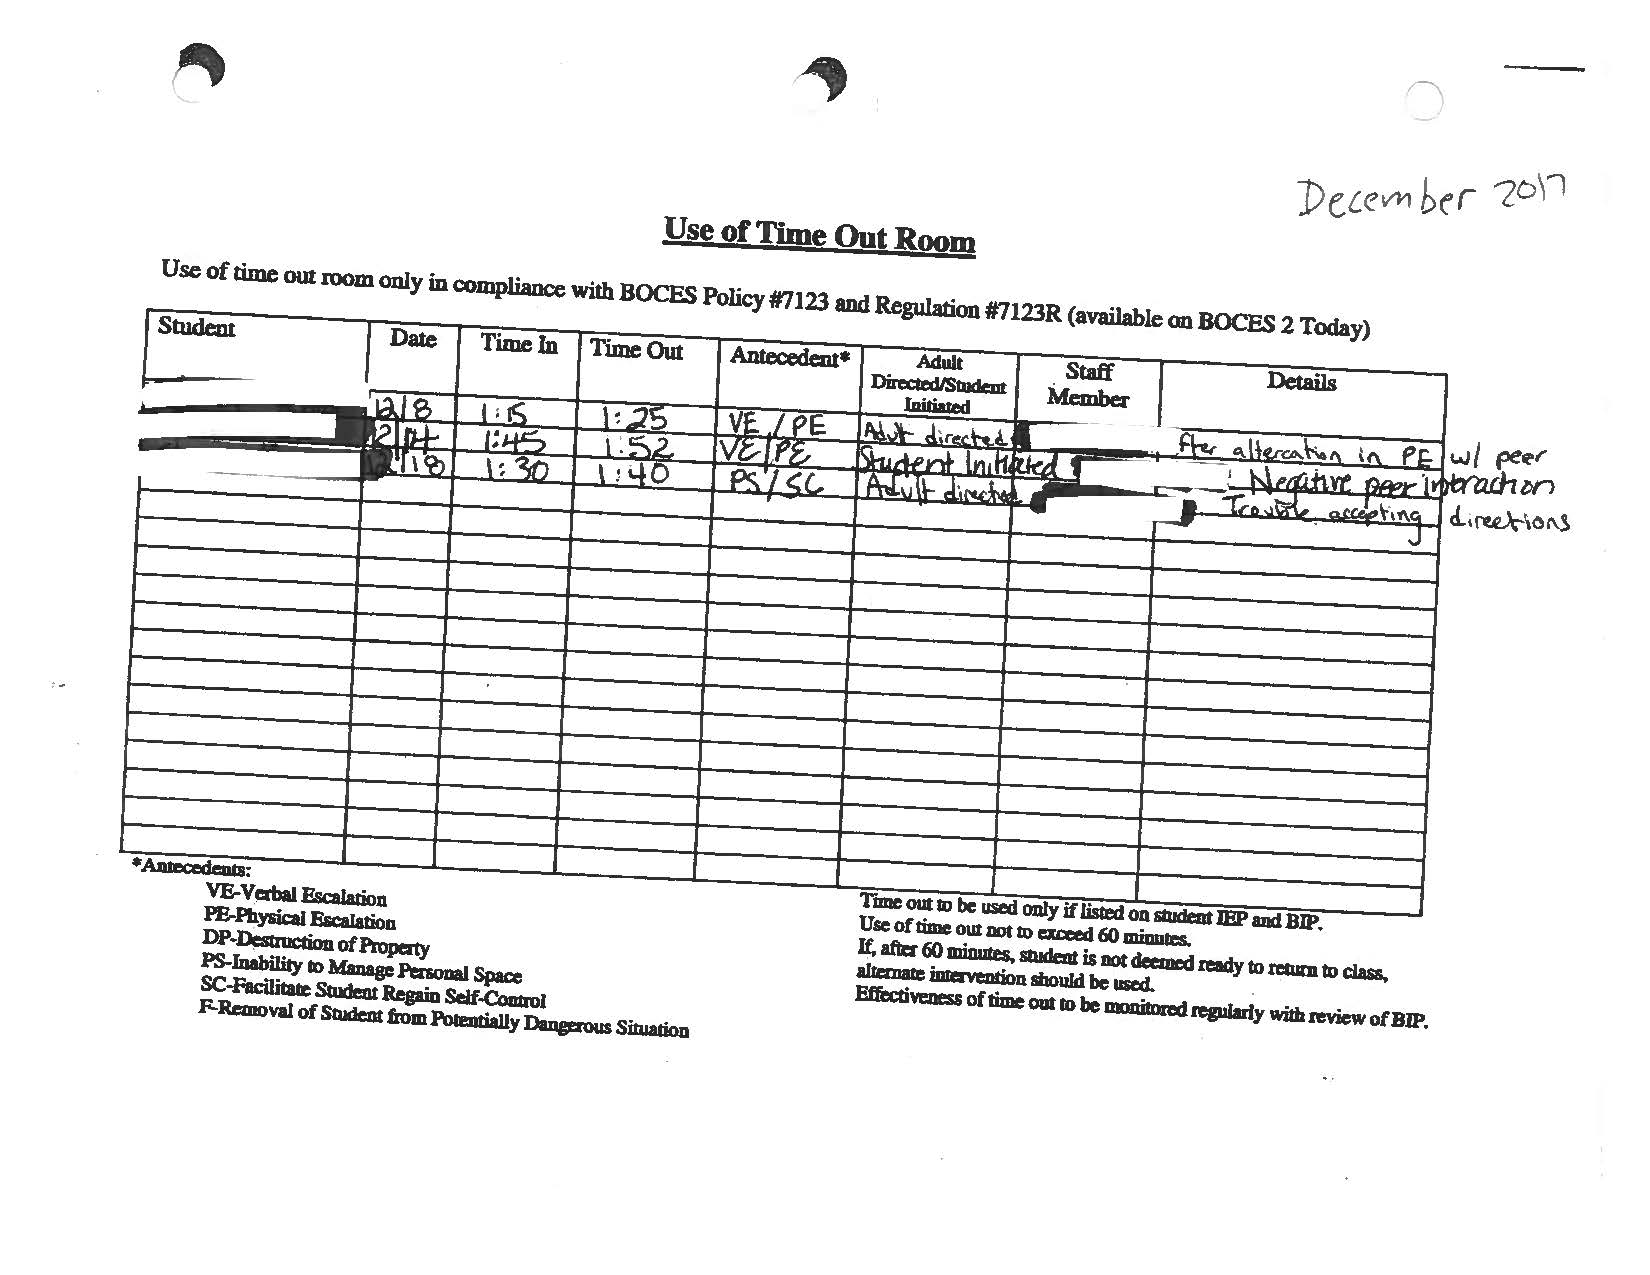 December 2017
Use of Time Out Room
Use of time out room only in compliance with BOCES Policy #7123 and Regulation #7123R (available on BOCES 2 Today)
Student Date Time In Time Out Antecedent* Adult Directed/Student Initiated Staff Member Details
12/8 1:15 1:25 VE/PE Adult directed fter altercation in PE w/ peer
12/14 1:45 1:52 VE/PE Student Initiated Negative peer intraction
12/18 1:30 1:40 PS/SC Adult directed Trouble accepting directions
*Antecedents:
VE-Verbal Escalation
PE-Physical Escalation
DP-Destruction of Property
PS-Inability to Manage Personal Space
SC-Facilitate Student Regain Self-Control
F-Removal of Student from Potentially Dangerous Situation
Time out to be used only if listed on student IEP and BIP.
Use of time out not to exceed 60 minutes.
If, after 60 minutes, student is not deemed ready to return to class,
alternate intervention should be used.
Effectiveness of time out to be monitored regularly with review of BIP.